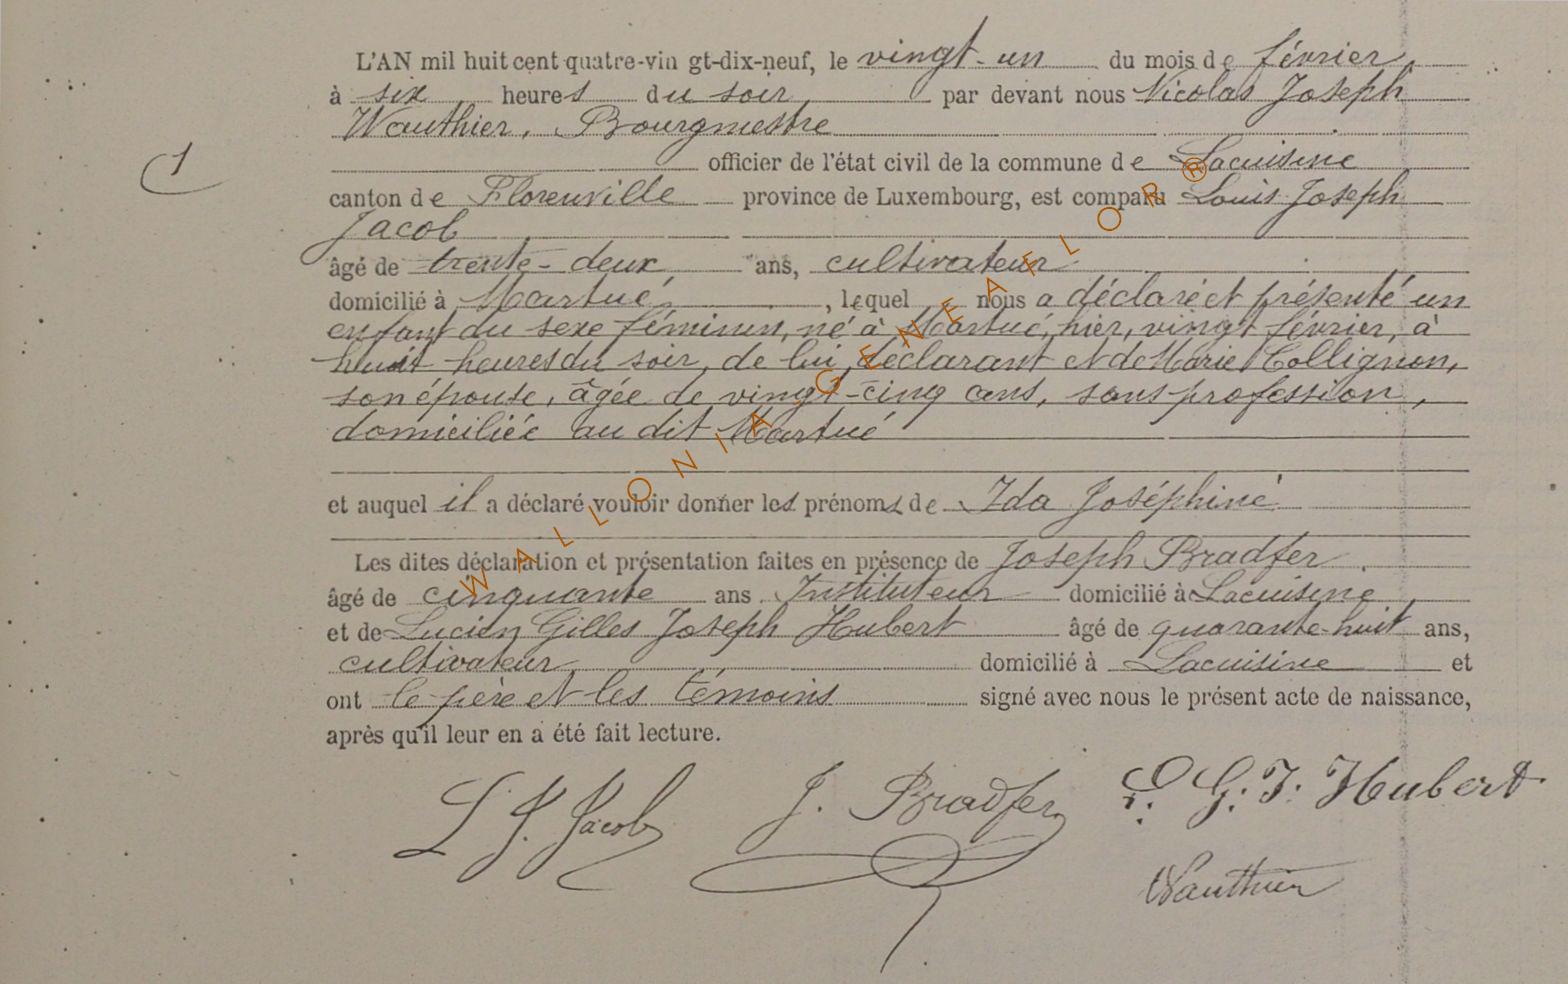 L'AN mil huit cent quatre-vingt-dix-neuf, le vingt-un du mois de février,
à six heures du soir, par devant nous Nicolas Joseph
Wauthier, Bourgmestre
1
officier de l'état civil de la commune de Lacuisine
canton de Florenville province de Luxembourg, est comparu Louis Joseph
Jacob
âgé de trente-deux ans, cultivateur
domicilié à Martué, lequel nous a déclaré et présenté un
enfant du sexe féminin, né à Martué, hier, vingt février, à
huit heures du soir, de lui déclarant et de Marie Collignon,
son épouse, âgée de vingt-cinq ans, sans profession,
domiciliée au dit Martué
et auquel il a déclaré vouloir donner les prénoms de Ida Joséphine
Les dites déclaration et présentation faites en présence de Joseph Bradfer
âgé de cinquante ans Instituteur domicilié à Lacuisine
et de Lucien Gilles Joseph Hubert âgé de quarante-huit ans,
cultivateur domicilié à Lacuisine et
ont le père et les témoins signé avec nous le présent acte de naissance,
après qu'il leur en a été fait lecture.
L. J. Jacob J. Bradfer L. G. J. Hubert
Wauthier
WALLONIA GENEAFLOR ®